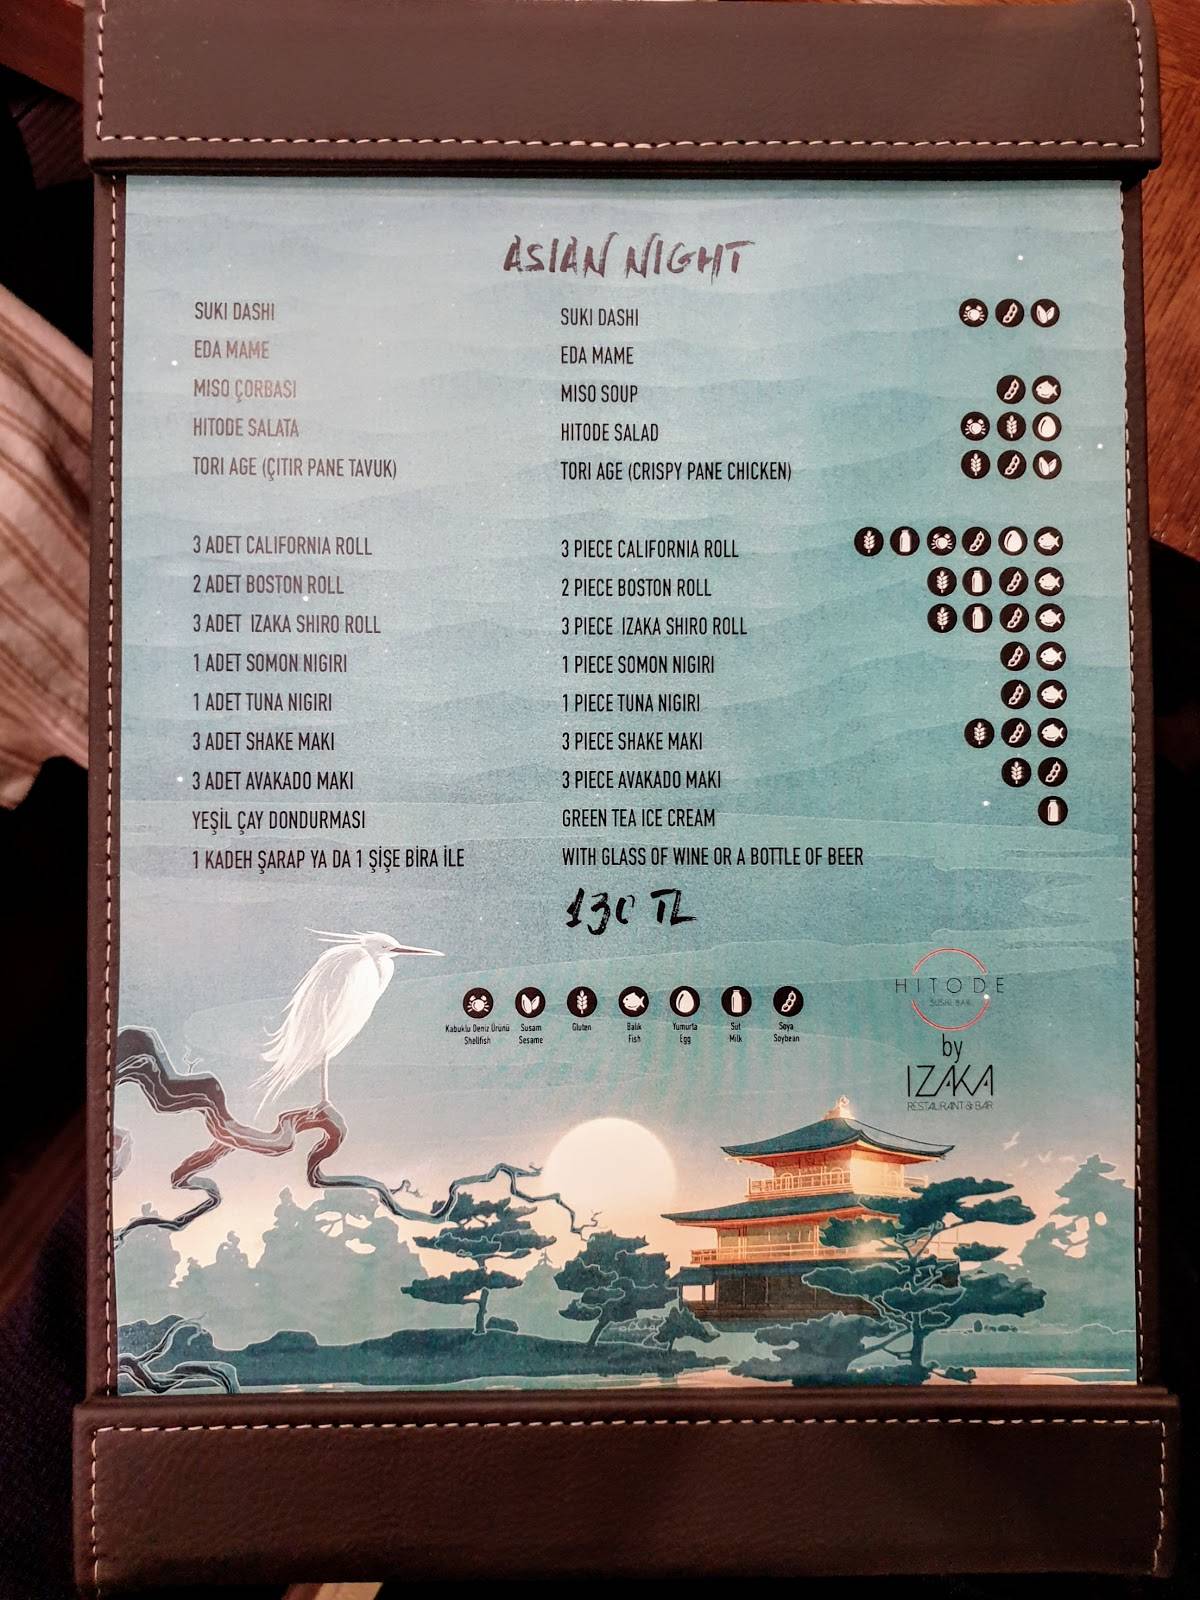 ASIAN NIGHT
SUKI DASHI
EDA MAME
MISO ÇORBASI
HITODE SALATA
TORI AGE (ÇITIR PANE TAVUK)
3 ADET CALIFORNIA ROLL
2 ADET BOSTON ROLL
3 ADET IZAKA SHIRO ROLL
1 ADET SOMON NIGIRI
1 ADET TUNA NIGIRI
3 ADET SHAKE MAKI
3 ADET AVAKADO MAKI
YEŞİL ÇAY DONDURMASI
1 KADEH ŞARAP YA DA 1 ŞİŞE BİRA İLE
SUKI DASHI
EDA MAME
MISO SOUP
HITODE SALAD
TORI AGE (CRISPY PANE CHICKEN)
3 PIECE CALIFORNIA ROLL
2 PIECE BOSTON ROLL
3 PIECE IZAKA SHIRO ROLL
1 PIECE SOMON NIGIRI
1 PIECE TUNA NIGIRI
3 PIECE SHAKE MAKI
3 PIECE AVAKADO MAKI
GREEN TEA ICE CREAM
WITH GLASS OF WINE OR A BOTTLE OF BEER
130 TL
Kabuklu Deniz Ürünü
Shellfish
Susam
Sesame
Gluten
Balık
Fish
Yumurta
Egg
Süt
Milk
Soya
Soybean
HITODE
SUSHI BAR
by
IZAKA
RESTAURANT & BAR